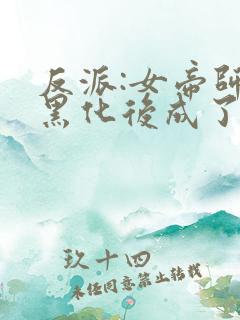 反派:女帝師
黑化後成了
玖十四
未经同意禁止转载